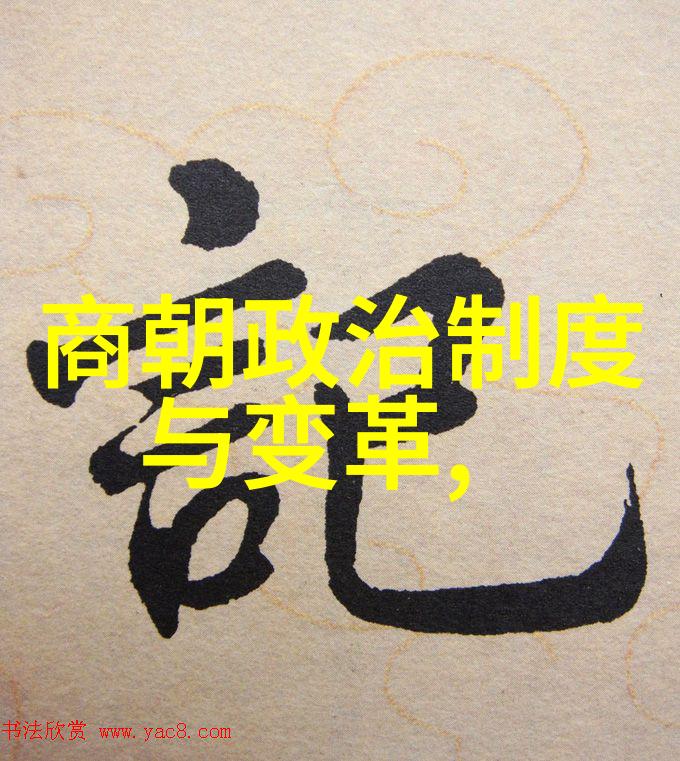 記
商朝政治制度
与变革,
书法欣赏 www.yac8.com